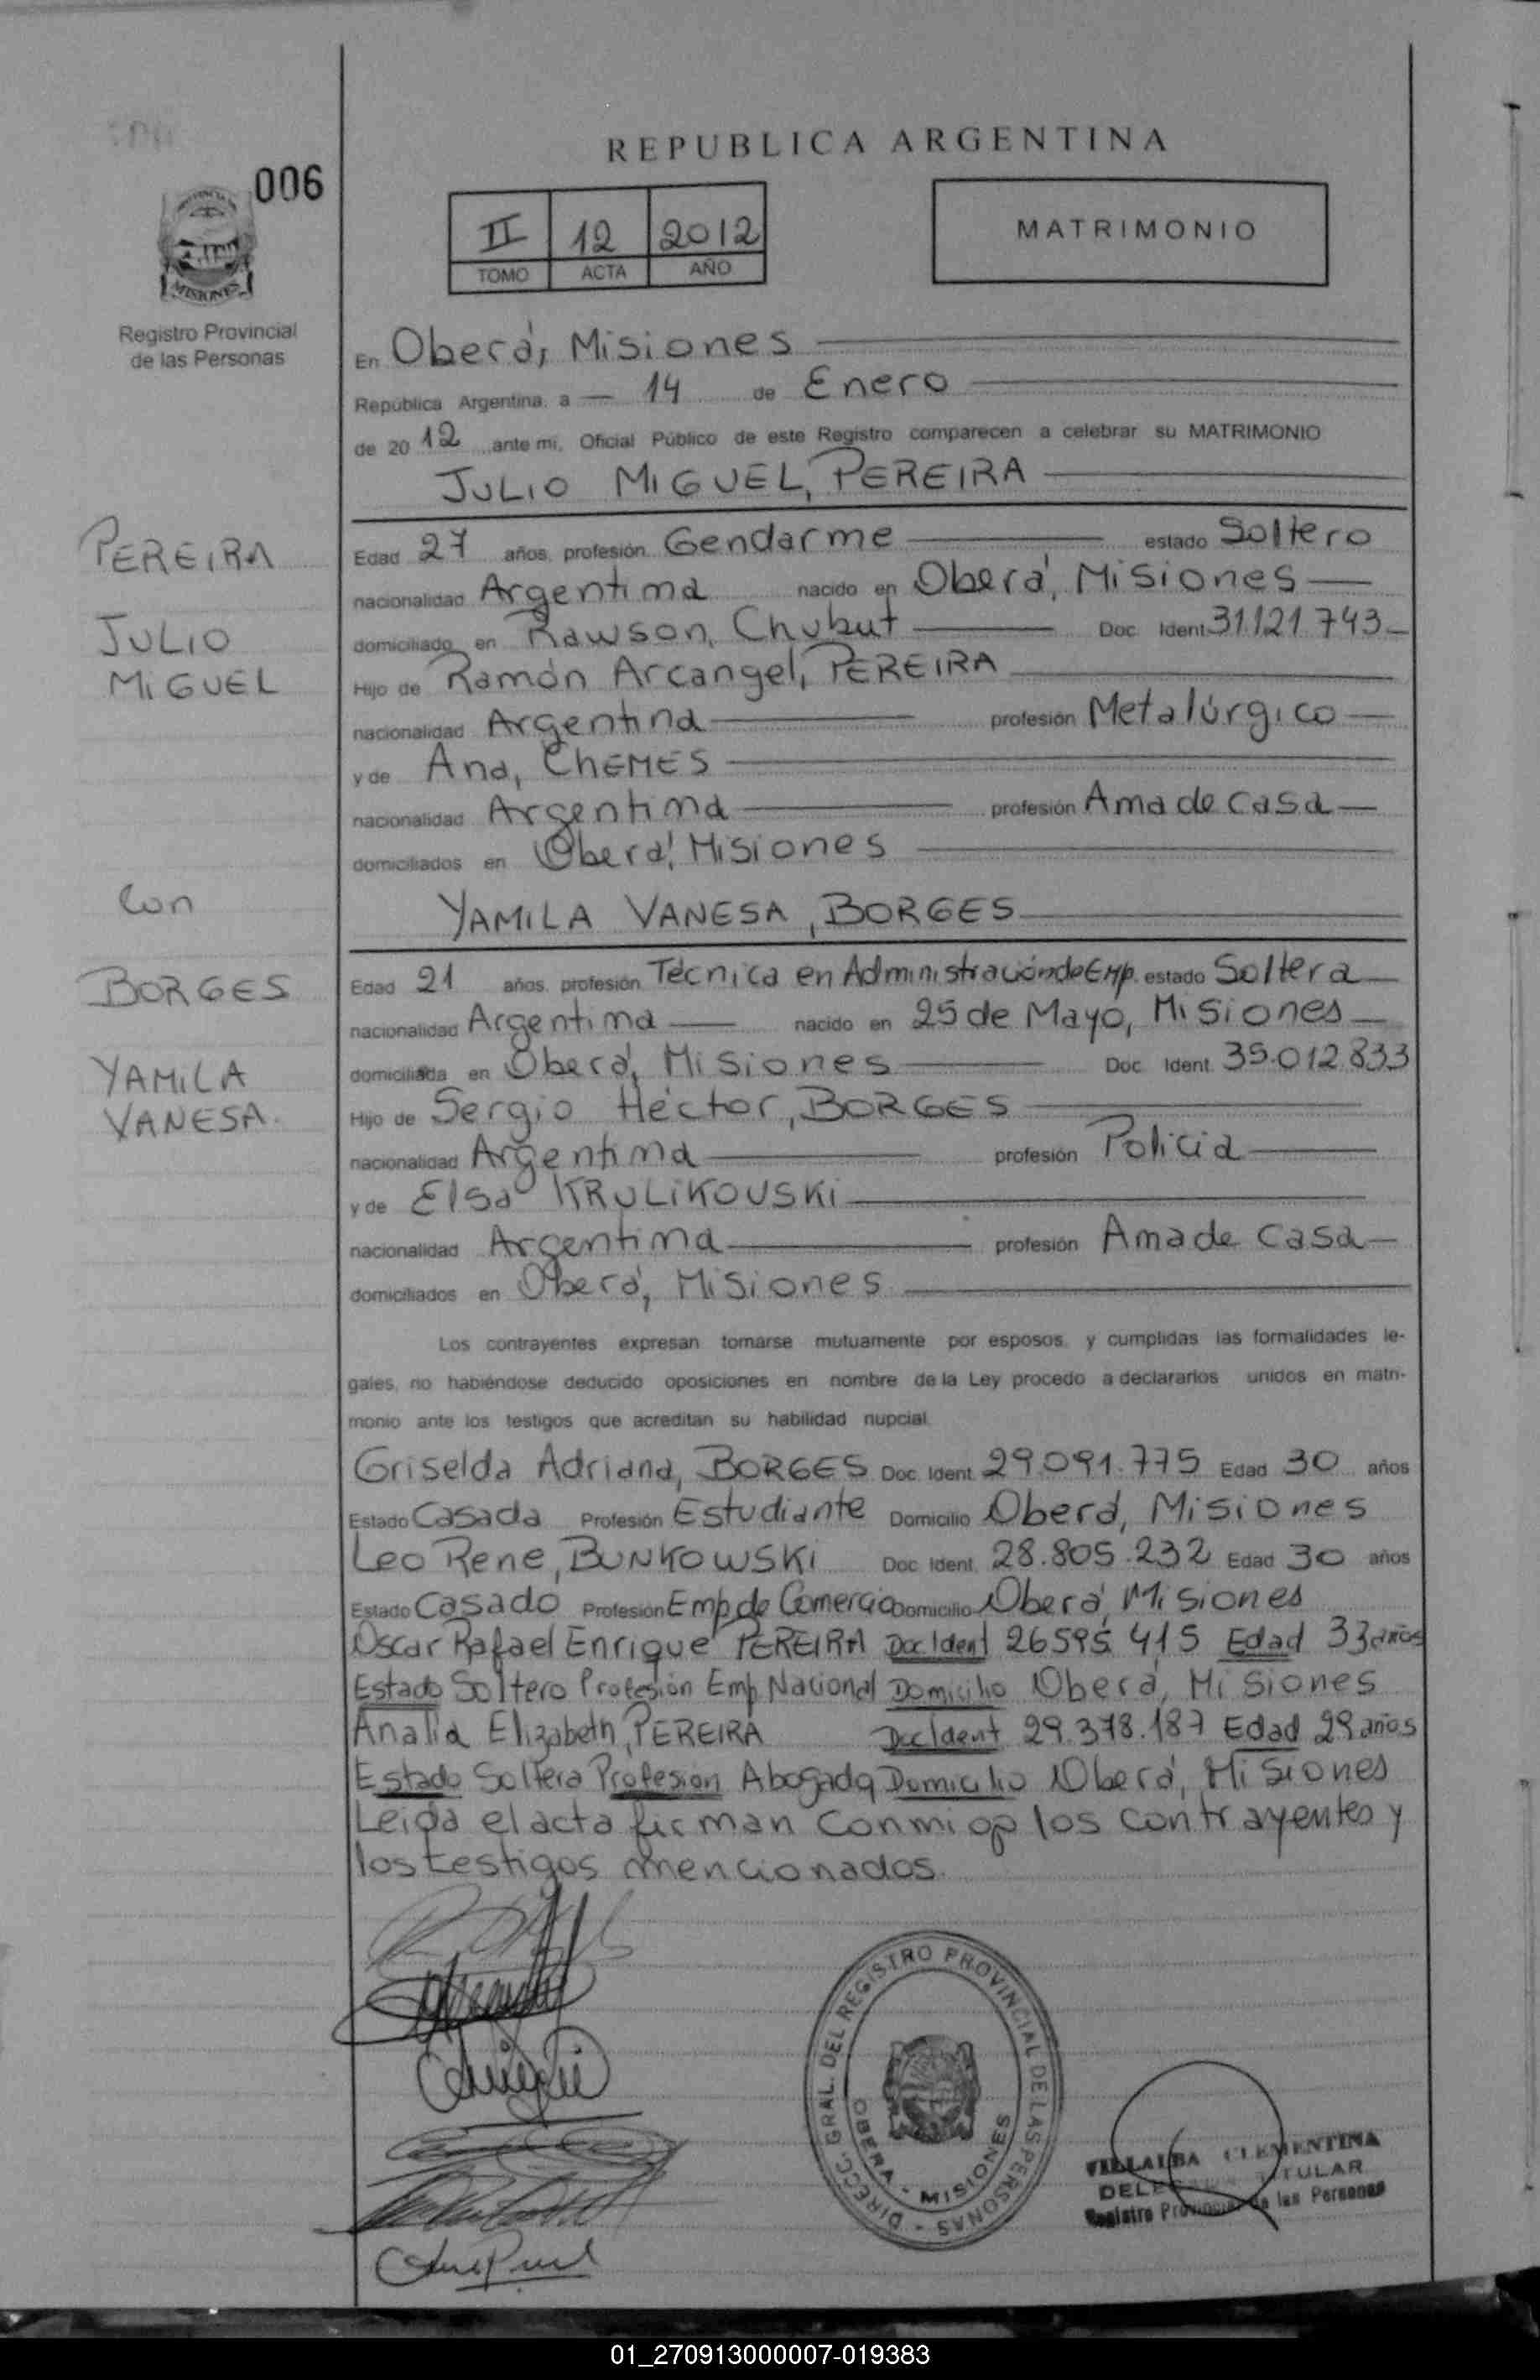 006
REPUBLICA ARGENTINA
II 12 2012
TOMO ACTA AÑO
MATRIMONIO
MISIONES
Registro Provincial
de las Personas
En Oberá, Misiones
República Argentina, a 14 de Enero
de 2012 ante mi, Oficial Público de este Registro comparecen a celebrar su MATRIMONIO
JULIO MIGUEL, PEREIRA
PEREIRA
JULIO
MIGUEL
Edad 27 años, profesión Gendarme estado Soltero
nacionalidad Argentina nacido en Oberá, Misiones
domiciliado en Rawson, Chubut Doc. Ident. 31.121.743
Hijo de Ramón Arcangel, PEREIRA
nacionalidad Argentina profesión Metalúrgico
y de Ana, CHEMES
nacionalidad Argentina profesión Ama de casa
domiciliados en Oberá, Misiones
Con
YAMILA VANESA, BORGES
BORGES
YAMILA
VANESA.
Edad 21 años, profesión Técnica en Administración de Emp. estado Soltera
nacionalidad Argentina nacido en 25 de Mayo, Misiones
domiciliada en Oberá, Misiones Doc. Ident. 35.012.833
Hijo de Sergio Héctor, BORGES
nacionalidad Argentina profesión Policía
y de Elsa KRULIKOUSKI
nacionalidad Argentina profesión Ama de Casa
domiciliados en Oberá, Misiones
Los contrayentes expresan tomarse mutuamente por esposos, y cumplidas las formalidades le-
gales, no habiéndose deducido oposiciones en nombre de la Ley procedo a declararlos unidos en matri-
monio ante los testigos que acreditan su habilidad nupcial.
Griselda Adriana, BORGES Doc. Ident. 29.091.775 Edad 30 años
Estado Casada Profesión Estudiante Domicilio Oberá, Misiones
Leo Rene, BUNKOWSKI Doc. Ident. 28.805.232 Edad 30 años
Estado Casado Profesión Emp de Comercio Domicilio Oberá, Misiones
Oscar Rafael Enrique PEREIRA Doc Ident 26595 415 Edad 33 años
Estado Soltero Profesión Emp Nacional Domicilio Oberá, Misiones
Analía Elizabeth, PEREIRA Doc Ident 29.378.187 Edad 29 años
Estado Soltera Profesión Abogada Domicilio Oberá, Misiones
Leída el acta firman conmigo los contrayentes y
los testigos mencionados.
DIRECC. GRAL. DEL REGISTRO PROVINCIAL DE LAS PERSONAS
OBERA - MISIONES
VILLALBA CLEMENTINA
TITULAR
Registro Provincial de las Personas
01_270913000007-019383